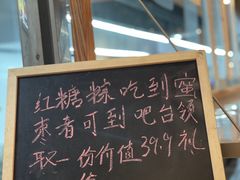 红糖粽吃到蜜
枣者可到吧台领
取一份价值39.9礼